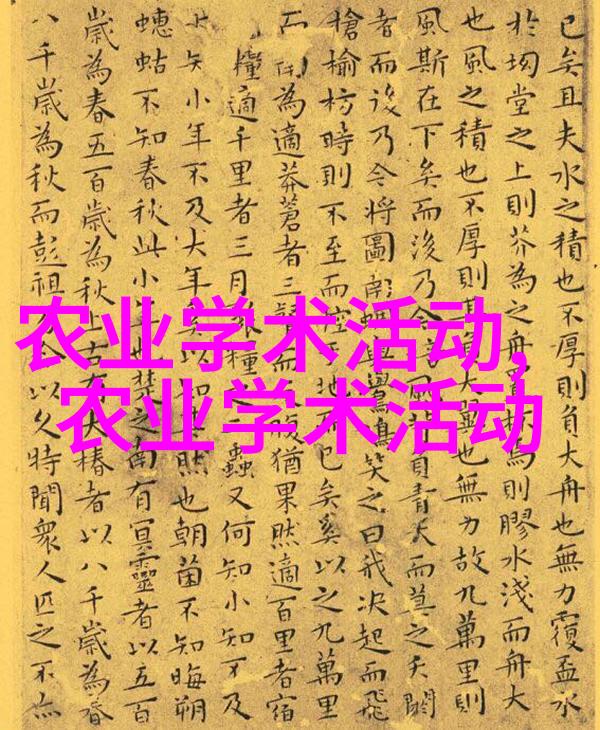 農业学术活动,
农业学术活动
已矣且夫水之積也不厚則負大舟也無力覆盃水
於坳堂之上則芥為之舟置杯焉則膠水淺而舟大
也風之積也不厚則其負大翼也無力故九萬里則
風斯在下矣而後乃今風背負青天而莫之夭閼
者而後乃今將圖南蜩與鷽鳩笑之曰我決起而飛
槍榆枋時則不至而控地而已矣奚以之九萬里
而為適莽蒼者三而腹猶果然適百里者宿
糧適千里者三月糧之蟲又何知小知不及
小年不及大年以知然也朝菌不知晦朔
蟪蛄不知春秋此小年也楚之南有冥靈者以五百
歲為春五百歲為秋上古有大椿者以八千歲為春
八千歲為秋而彭祖今以久特聞眾人匹之不亦